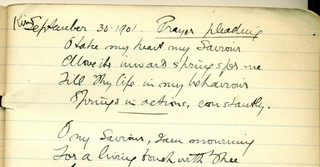 September 30. 1901. Prayer pleading
O take my heart my Saviour
Move its inward springs for me
Till Thy life in my behaviour
Springs in actions, constantly.
O my Saviour, I am mourning
For a living touch with Thee